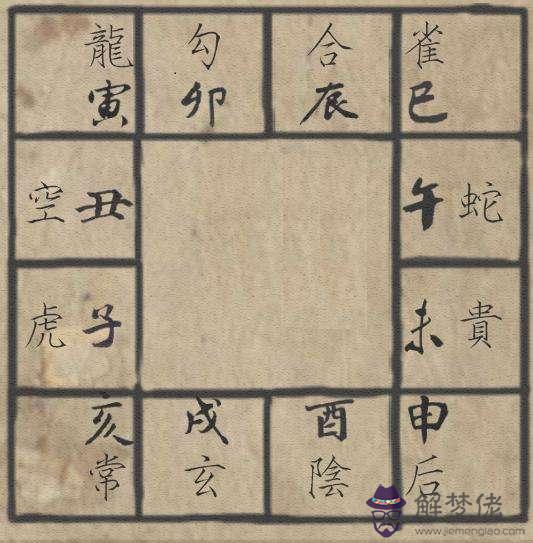 龍 勾 合 雀
寅 卯 辰 巳
空 丑 午 蛇
虎 子 未 貴
亥 戌 酉 申
常 玄 陰 后
解梦佬
www.jiemenglao.com